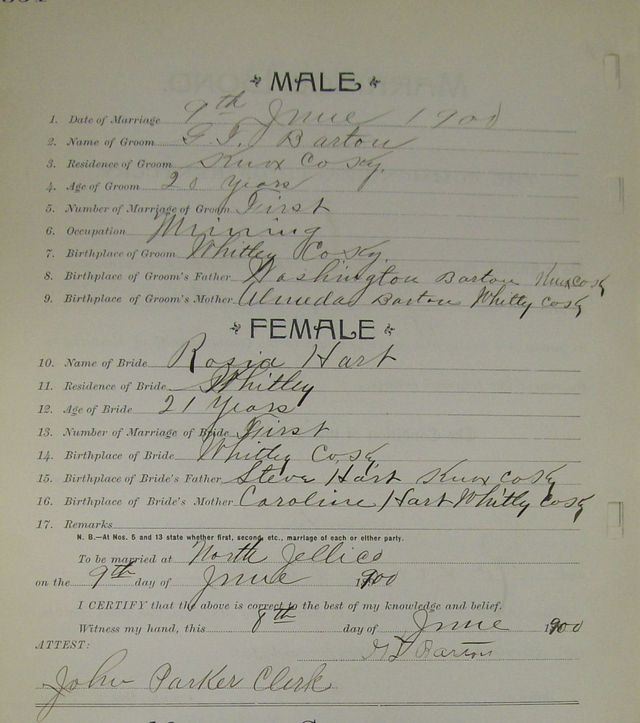 MALE
1. Date of Marriage 9th June 1900
2. Name of Groom G. T. Barton
3. Residence of Groom Knox Co Ky.
4. Age of Groom years
5. Number of Marriage of Groom First
6. Occupation Mining
7. Birthplace of Groom Whitley Co Ky.
8. Birthplace of Groom's Father Washington Barton Knox Co Ky
9. Birthplace of Groom's Mother Almeda Barton Whitly Co Ky
FEMALE
10. Name of Bride Rosia Hart
11. Residence of Bride Whitley
12. Age of Bride 21 years
13. Number of Marriage of Bride First
14. Birthplace of Bride Whitley Co. Ky
15. Birthplace of Bride's Father Steve Hart Knox Co Ky
16. Birthplace of Bride's Mother Caroline Hart Whitly Co Ky
17. Remarks
N. B.—At Nos. 5 and 13 state whether first, second, etc., marriage of each or either party.
To be married at North Jellico
on the 9th day of June 1900
I CERTIFY that the above is correct to the best of my knowledge and belief.
Witness my hand, this 8th day of June 1900
ATTEST: Barton
John Parker Clerk